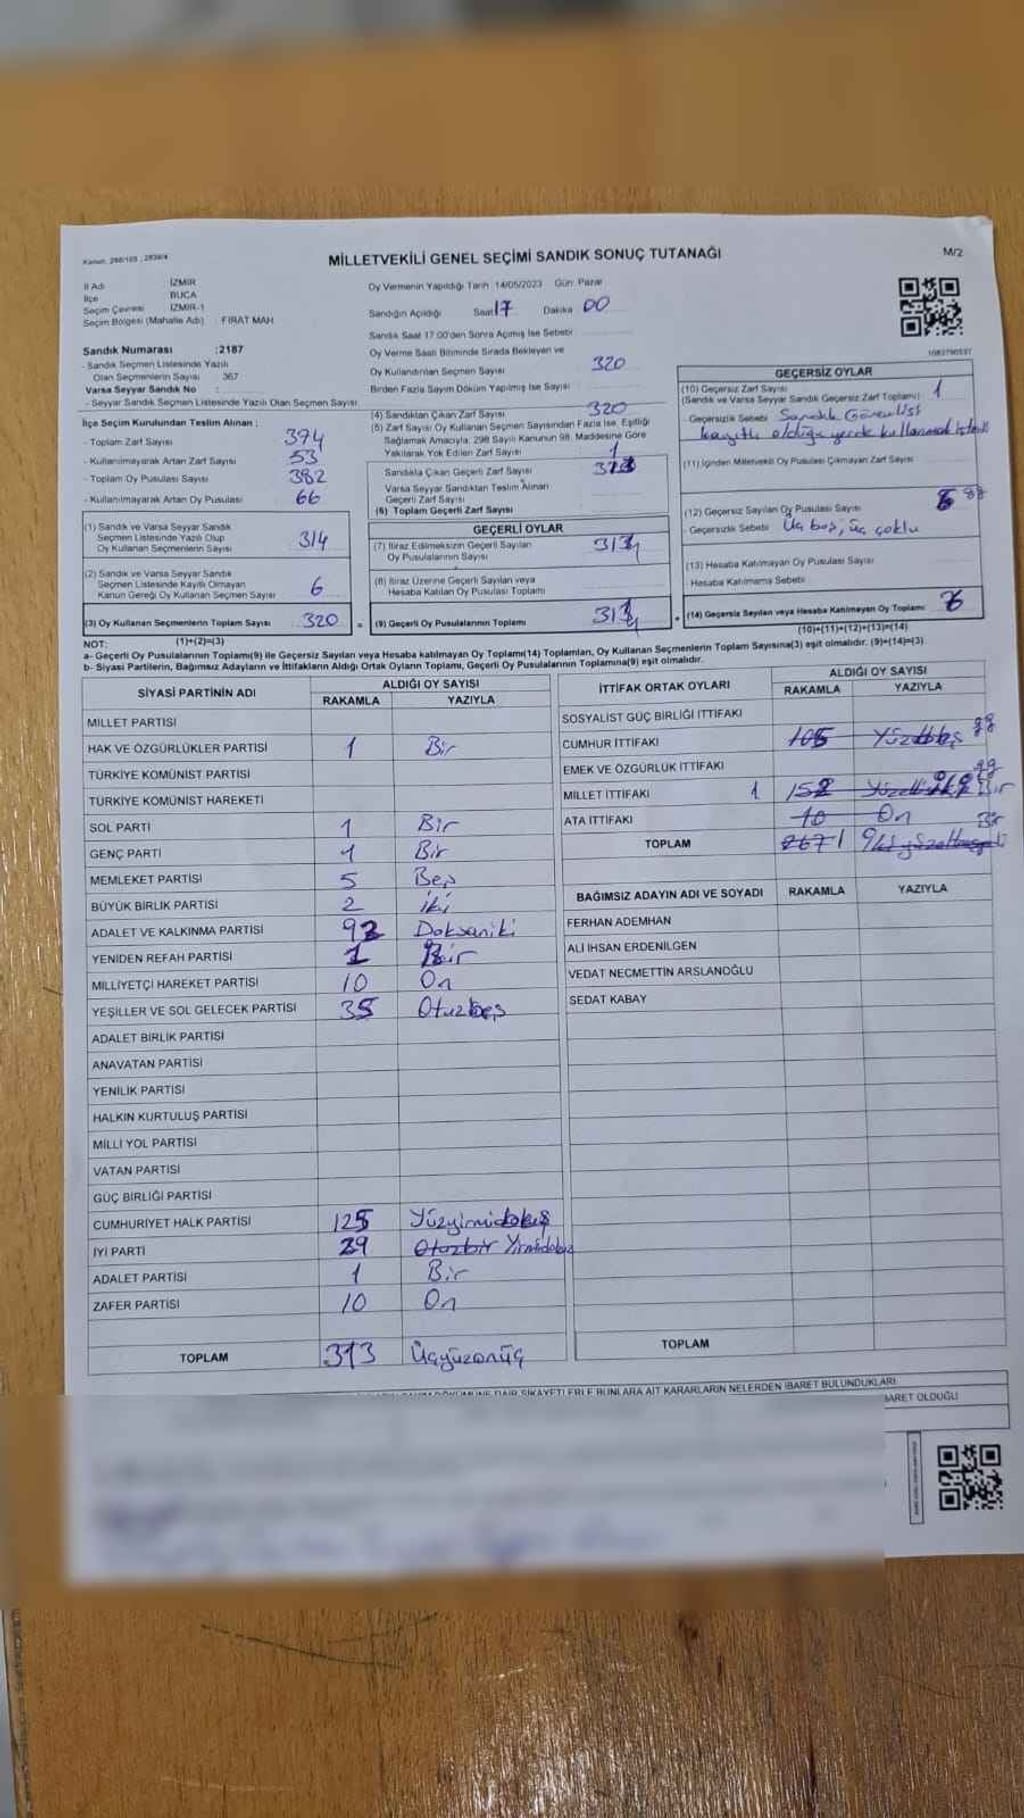 Kanun: 298/105 , 2839/4
MİLLETVEKİLİ GENEL SEÇİMİ SANDIK SONUÇ TUTANAĞI
M/2
İl Adı İZMİR
İlçe BUCA
Seçim Çevresi İZMİR-1
Seçim Bölgesi (Mahalle Adı) FIRAT MAH
Sandık Numarası :2187
- Sandık Seçmen Listesinde Yazılı
Olan Seçmenlerin Sayısı 367
Varsa Seyyar Sandık No :
- Seyyar Sandık Seçmen Listesinde Yazılı Olan Seçmen Sayısı
İlçe Seçim Kurulundan Teslim Alınan :
- Toplam Zarf Sayısı 374
- Kullanılmayarak Artan Zarf Sayısı 53
- Toplam Oy Pusulası Sayısı 382
- Kullanılmayarak Artan Oy Pusulası 66
(1) Sandık ve Varsa Seyyar Sandık
Seçmen Listesinde Yazılı Olup
Oy Kullanan Seçmenlerin Sayısı 314
(2) Sandık ve Varsa Seyyar Sandık
Seçmen Listesinde Kayıtlı Olmayan
Kanun Gereği Oy Kullanan Seçmen Sayısı 6
(3) Oy Kullanan Seçmenlerin Toplam Sayısı 320
(1)+(2)=(3)
Oy Vermenin Yapıldığı Tarih 14/05/2023 Gün: Pazar
Sandığın Açıldığı Saat 17 Dakika 00
Sandık Saat 17:00'den Sonra Açılmış İse Sebebi
Oy Verme Saati Bitiminde Sırada Bekleyen ve
Oy Kullandırılan Seçmen Sayısı 320
Birden Fazla Sayım Döküm Yapılmış İse Sayısı
(4) Sandıktan Çıkan Zarf Sayısı 320
(5) Zarf Sayısı Oy Kullanan Seçmen Sayısından Fazla İse, Eşitliği
Sağlamak Amacıyla, 298 Sayılı Kanunun 98. Maddesine Göre
Yakılarak Yok Edilen Zarf Sayısı 1
Sandıkta Çıkan Geçerli Zarf Sayısı
Varsa Seyyar Sandıktan Teslim Alınan
Geçerli Zarf Sayısı
(6) Toplam Geçerli Zarf Sayısı
GEÇERLİ OYLAR
(7) İtiraz Edilmeksizin Geçerli Sayılan
Oy Pusulalarının Sayısı
(8) İtiraz Üzerine Geçerli Sayılan veya
Hesaba Katılan Oy Pusulası Toplamı
= (9) Geçerli Oy Pusulalarının Toplamı
1083790537
GEÇERSİZ OYLAR
(10) Geçersiz Zarf Sayısı 1
(Sandık ve Varsa Seyyar Sandık Geçersiz Zarf Toplamı)
Geçersizlik Sebebi Sandık Görevlisi
kayıtlı olduğu yerde kullanmak istedi
(11) İçinden Milletvekili Oy Pusulası Çıkmayan Zarf Sayısı
(12) Geçersiz Sayılan Oy Pusulası Sayısı 6
Geçersizlik Sebebi Üç boş, üç çoklu
(13) Hesaba Katılmayan Oy Pusulası Sayısı
Hesaba Katılmama Sebebi
+ (14) Geçersiz Sayılan veya Hesaba Katılmayan Oy Toplamı
(10)+(11)+(12)+(13)=(14)
NOT:
a- Geçerli Oy Pusulalarının Toplamı(9) ile Geçersiz Sayılan veya Hesaba katılmayan Oy Toplamı(14) Toplamları, Oy Kullanan Seçmenlerin Toplam Sayısına(3) eşit olmalıdır. (9)+(14)=(3)
b- Siyasi Partilerin, Bağımsız Adayların ve İttifakların Aldığı Ortak Oyların Toplamı, Geçerli Oy Pusulalarının Toplamına(9) eşit olmalıdır.
SİYASİ PARTİNİN ADI ALDIĞI OY SAYISI
RAKAMLA YAZIYLA
MİLLET PARTİSİ
HAK VE ÖZGÜRLÜKLER PARTİSİ 1 Bir
TÜRKİYE KOMÜNİST PARTİSİ
TÜRKİYE KOMÜNİST HAREKETİ
SOL PARTİ 1 Bir
GENÇ PARTİ 1 Bir
MEMLEKET PARTİSİ 5 Beş
BÜYÜK BİRLİK PARTİSİ 2 iki
ADALET VE KALKINMA PARTİSİ 92 Doksaniki
YENİDEN REFAH PARTİSİ 1 Bir
MİLLİYETÇİ HAREKET PARTİSİ 10 On
YEŞİLLER VE SOL GELECEK PARTİSİ 35 Otuzbeş
ADALET BİRLİK PARTİSİ
ANAVATAN PARTİSİ
YENİLİK PARTİSİ
HALKIN KURTULUŞ PARTİSİ
MİLLİ YOL PARTİSİ
VATAN PARTİSİ
GÜÇ BİRLİĞİ PARTİSİ
CUMHURİYET HALK PARTİSİ 125 Yüzyirmidokuş
İYİ PARTİ 29 Otuzbir Yirmidokuz
ADALET PARTİSİ 1 Bir
ZAFER PARTİSİ 10 On
TOPLAM 313 Üçyüzonüç
İTTİFAK ORTAK OYLARI ALDIĞI OY SAYISI
RAKAMLA YAZIYLA
SOSYALİST GÜÇ BİRLİĞİ İTTİFAKI
CUMHUR İTTİFAKI 105 Yüzbeş
EMEK VE ÖZGÜRLÜK İTTİFAKI
MİLLET İTTİFAKI 1 152 Bir
ATA İTTİFAKI 10 On
TOPLAM 267 1 Bir
BAĞIMSIZ ADAYIN ADI VE SOYADI RAKAMLA YAZIYLA
FERHAN ADEMHAN
ALİ İHSAN ERDENİLGEN
VEDAT NECMETTİN ARSLANOĞLU
SEDAT KABAY
TOPLAM
DÖKÜMÜNE DAİR ŞİKAYETLERLE BUNLARA AİT KARARLARIN NELERDEN İBARET BULUNDUKLARI
İBARET OLDUĞU